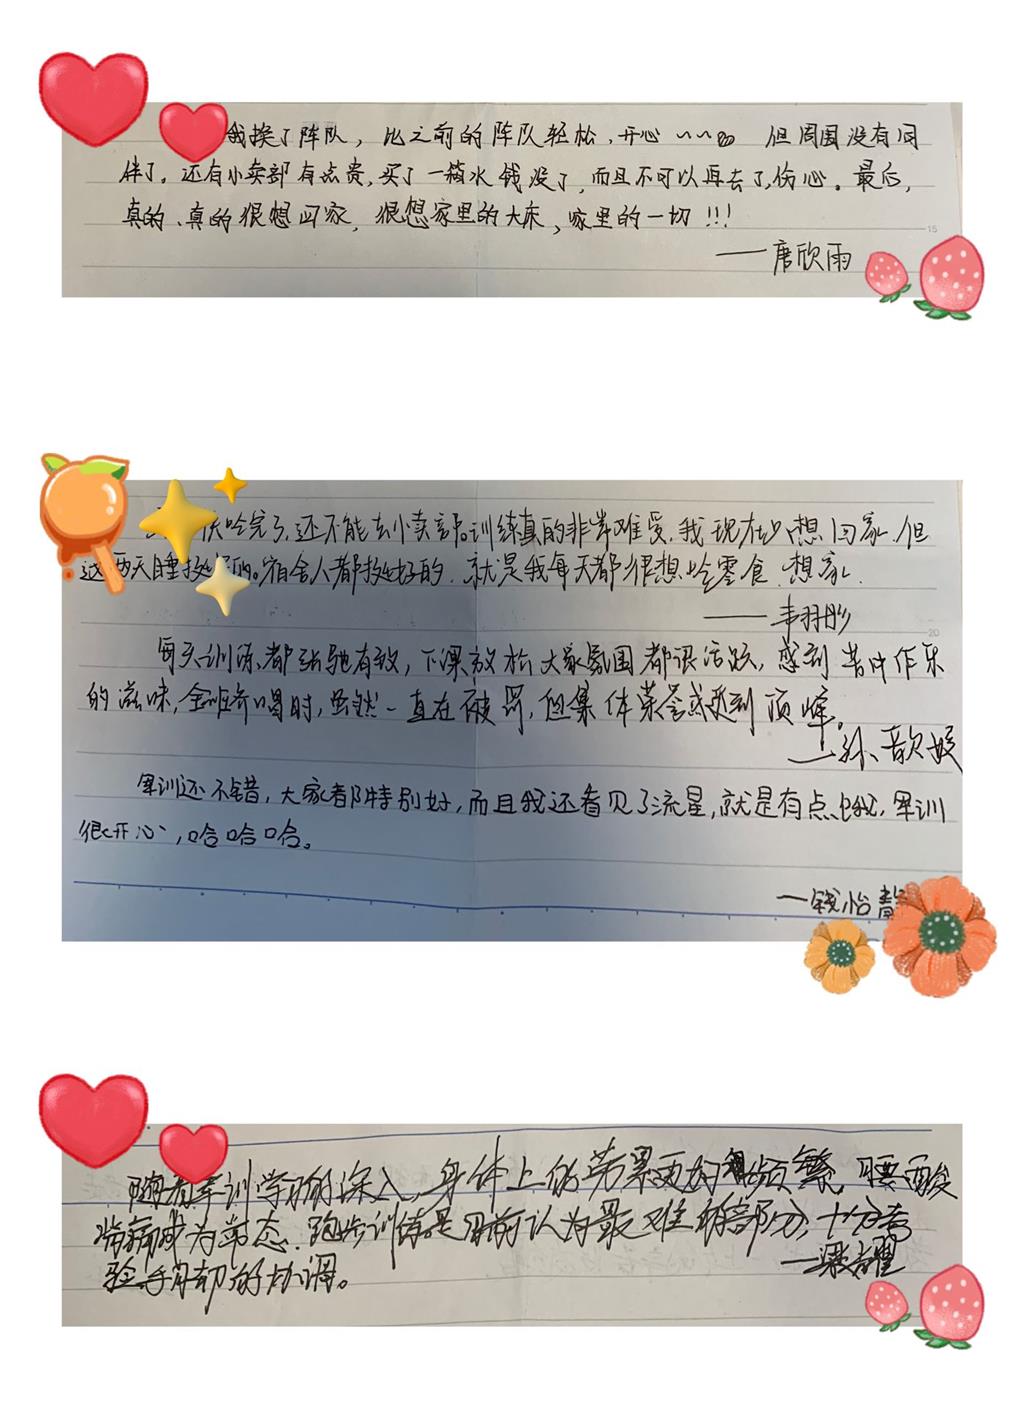 我换了阵队，比之前的阵队轻松，开心~~ 但周围没有同
伴了。还有小卖部有点贵，买了一箱水钱没了，而且不可以再去了，伤心。最后，
真的、真的很想回家，很想家里的大床，家里的一切!!!
15
——唐欣雨
完了，还不能去小卖部。训练真的非常难受，我现在只想回家。但
这两天睡挺好的。宿舍人都挺好的，就是我每天都很想吃零食，想家。
——韦羽彤
20
每天训练都张弛有效，下课放松大家氛围都很活跃，感到苦中作乐
的滋味，全班齐唱时，虽然一直在被罚，但集体荣誉感达到顶峰。
——孙歆媛
军训还不错，大家都特别好，而且我还看见了流星，就是有点饿，军训
很开心，哈哈哈。
—钱怡静
随着军训学习的深入，身体上的劳累更加频繁，腰酸
背痛成为常态。跑步训练是目前认为最难的部分，十分考
验手脚的协调。
—梁耀